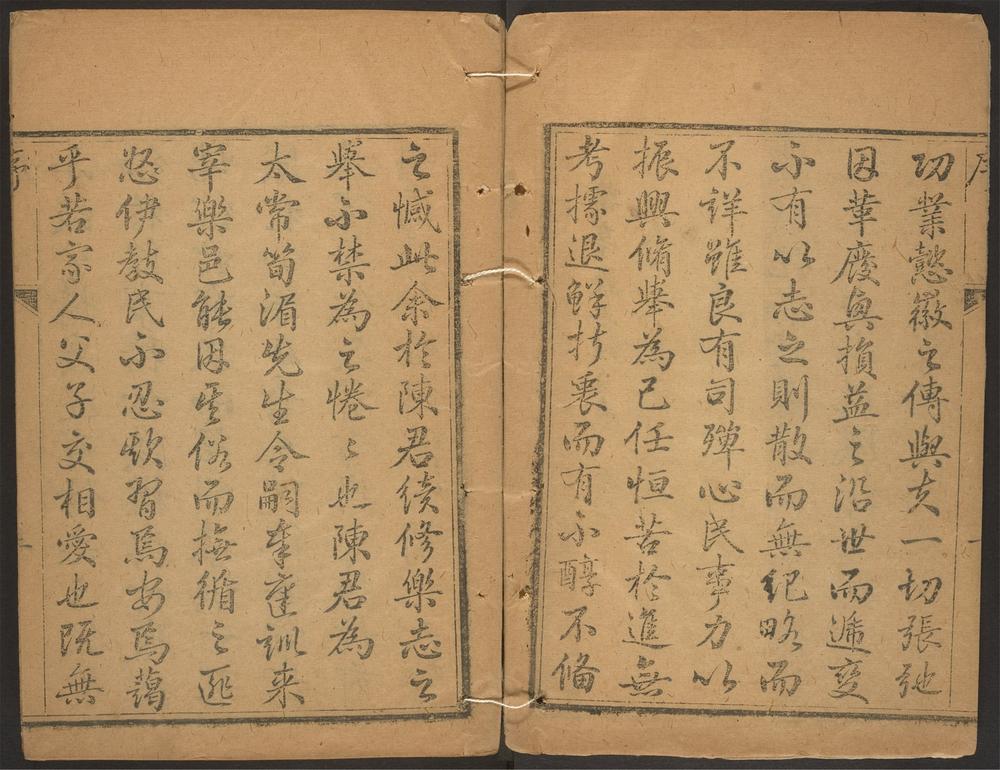 功業懿徽之傳與夫一切張弛
因革廢興損益之沿世而遞變
不有以志之則散而無紀略而
不詳雖良有司殫心民事力以
振興脩舉為己任恒苦於進無
考據退鮮折衷而有不醇不備
之憾此余於陳君續修樂志之
舉不禁為之惓〻也陳君為
太常筍湄先生令嗣奉庭訓来
宰樂邑能因其俗而撫循之
怒伊教民不忍欺習焉安焉藹
乎若家人父子交相愛也既無
序